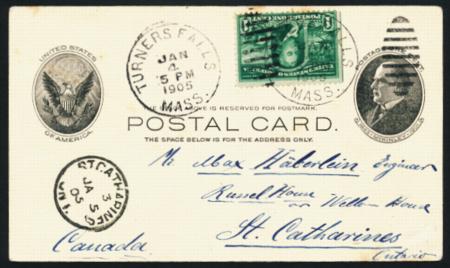 UNITED STATES
OF AMERICA
TURNERS FALLS
JAN
4
5 PM
1905
MASS.
FALLS
MASS.
THE SPACE ABOVE IS RESERVED FOR POSTMARK.
POSTAL CARD.
THE SPACE BELOW IS FOR THE ADDRESS ONLY.
ST. CATHARINES
3
JA 5
05
ONT.
Mr Max Häberlein Engineer
Russel House
or Wells House
St. Catharines
Canada
Ontario